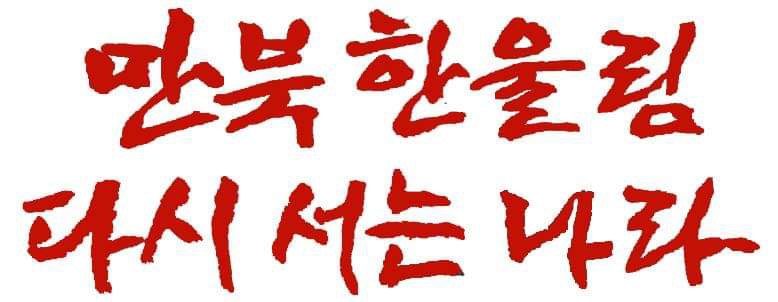 만북 한울림
다시 서는 나라